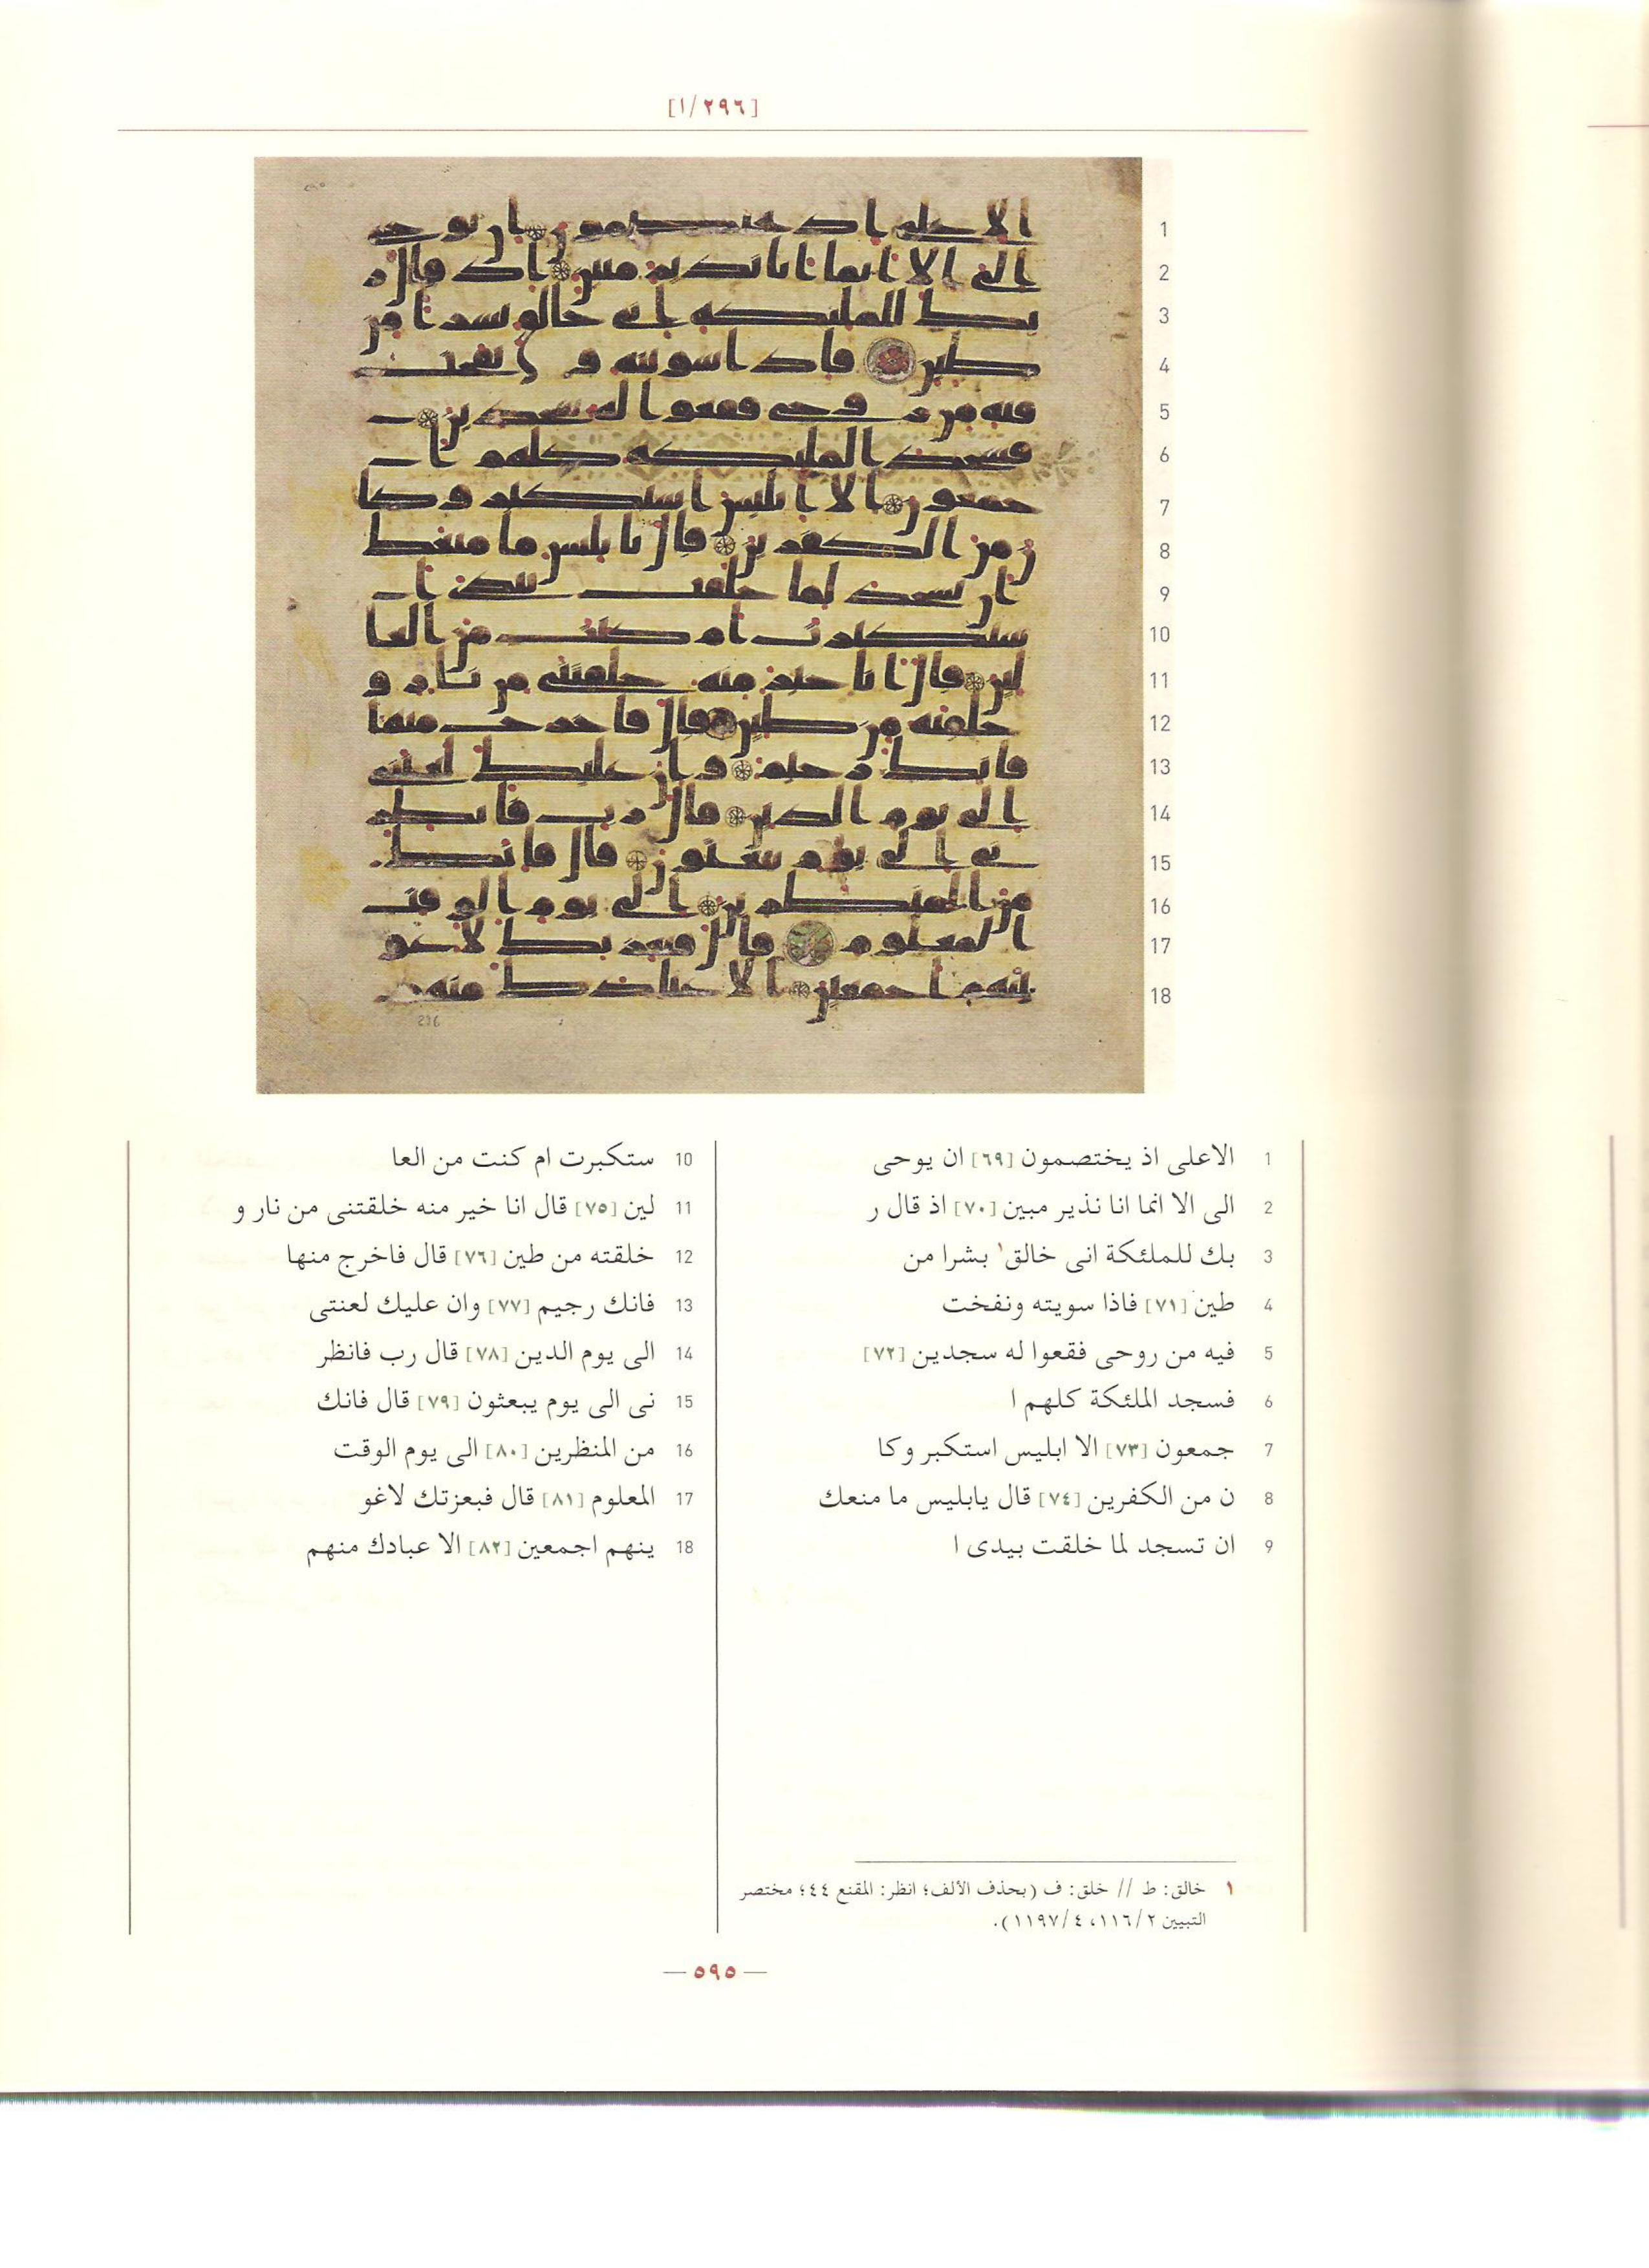 [٢٩٦/١]
1 الاعلى اذ يختصمون [٦٩] ان يوحى
2 الى الا انما انا نذير مبين [٧٠] اذ قال ر
3 بك للملئكة انى خالق١ بشرا من
4 طين [٧١] فاذا سويته ونفخت
5 فيه من روحى فقعوا له سجدين [٧٢]
6 فسجد الملئكة كلهم ا
7 جمعون [٧٣] الا ابليس استكبر وكا
8 ن من الكفرين [٧٤] قال يابليس ما منعك
9 ان تسجد لما خلقت بيدى ا
10 ستكبرت ام كنت من العا
11 لين [٧٥] قال انا خير منه خلقتنى من نار و
12 خلقته من طين [٧٦] قال فاخرج منها
13 فانك رجيم [٧٧] وان عليك لعنتى
14 الى يوم الدين [٧٨] قال رب فانظر
15 نى الى يوم يبعثون [٧٩] قال فانك
16 من المنظرين [٨٠] الى يوم الوقت
17 المعلوم [٨١] قال فبعزتك لاغو
18 ينهم اجمعين [٨٢] الا عبادك منهم
١ خالق: ط // خلق: ف (بحذف الألف؛ انظر: المقنع ٤٤؛ مختصر
التبيين ١١٦/٢، ١١٩٧/٤).
— ٥٩٥ —